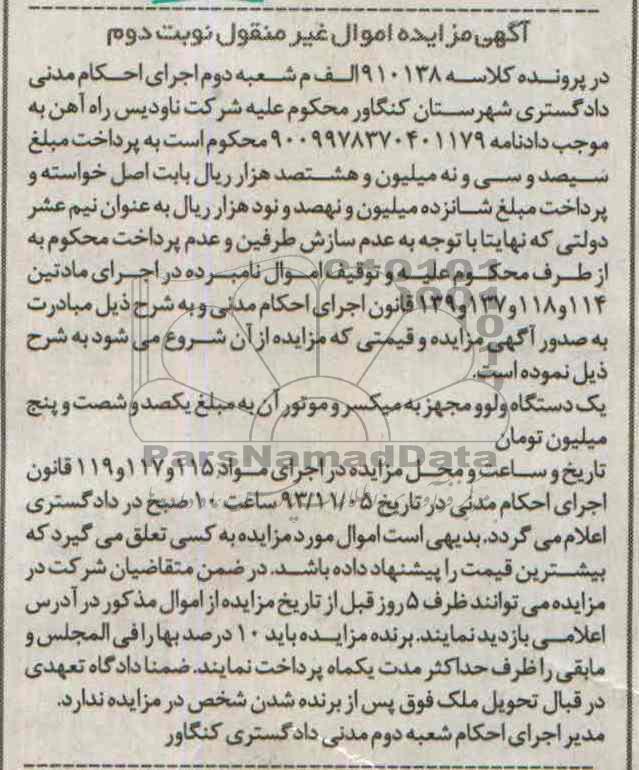 آگهی مزایده اموال غیر منقول نوبت دوم
در پرونده کلاسه ۹۱۰۱۳۸ الف م شعبه دوم اجرای احکام مدنی
دادگستری شهرستان کنگاور محکوم علیه شرکت ناودیس راه آهن به
موجب دادنامه ۹۰۰۹۹۷۸۳۷۰۴۰۱۱۷۹ محکوم است به پرداخت مبلغ
سیصد و سی و نه میلیون و هشتصد هزار ریال بابت اصل خواسته و
پرداخت مبلغ شانزده میلیون و نهصد و نود هزار ریال به عنوان نیم عشر
دولتی که نهایتا با توجه به عدم سازش طرفین و عدم پرداخت محکوم به
از طرف محکوم علیه و توقیف اموال نامبرده در اجرای مادتین
۱۱۴ و ۱۱۸ و ۱۳۷ و ۱۳۹ قانون اجرای احکام مدنی و به شرح ذیل مبادرت
به صدور آگهی مزایده و قیمتی که مزایده از آن شروع می شود به شرح
ذیل نموده است.
یک دستگاه ولوو مجهز به میکسر و موتور آن به مبلغ یکصد و شصت و پنج
میلیون تومان
ParsNamadData
تاریخ و ساعت و محل مزایده در اجرای مواد ۱۱۵ و ۱۱۷ و ۱۱۹ قانون
اجرای احکام مدنی در تاریخ ۹۳/۱۱/۰۵ ساعت ۱۰ صبح در دادگستری
اعلام می گردد. بدیهی است اموال مورد مزایده به کسی تعلق می گیرد که
بیشترین قیمت را پیشنهاد داده باشد. در ضمن متقاضیان شرکت در
مزایده می توانند ظرف ۵ روز قبل از تاریخ مزایده از اموال مذکور در آدرس
اعلامی بازدید نمایند. برنده مزایده باید ۱۰ درصد بها را فی المجلس و
مابقی را ظرف حداکثر مدت یکماه پرداخت نمایند. ضمنا دادگاه تعهدی
در قبال تحویل ملک فوق پس از برنده شدن شخص در مزایده ندارد.
مدیر اجرای احکام شعبه دوم مدنی دادگستری کنگاور